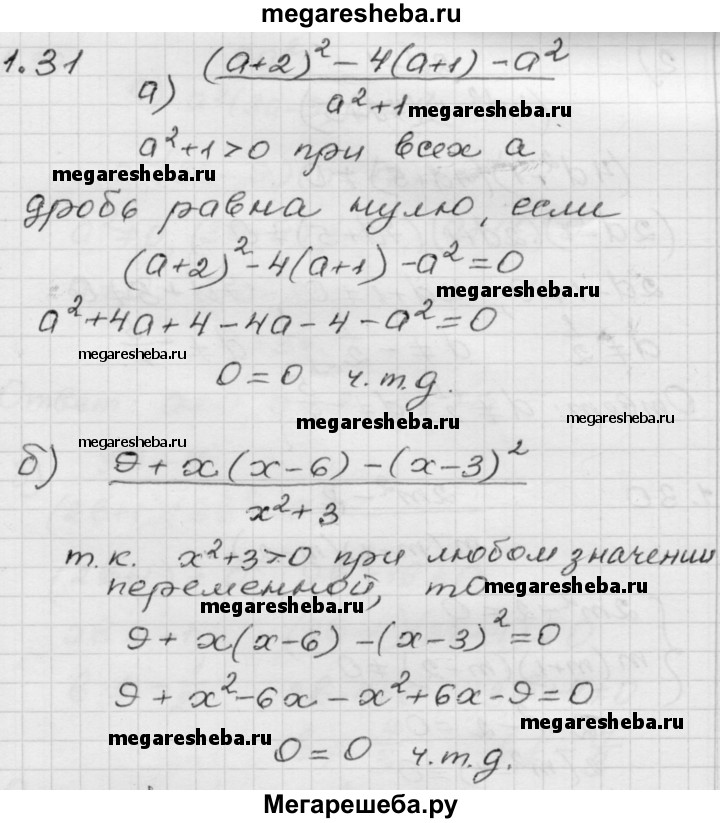 megaresheba.ru
1.31
а) ((a+2)² − 4(a+1) − a²)/(a²+1)
megaresheba.ru
a²+1>0 при всех a
megaresheba.ru
дробь равна нулю, если
(a+2)² − 4(a+1) − a² = 0
megaresheba.ru
a²+4a+4−4a−4−a²=0
megaresheba.ru
0=0 ч.т.д.
megaresheba.ru
megaresheba.ru
megaresheba.ru
б) (9+x(x−6)−(x−3)²)/(x²+3)
т.к. x²+3>0 при любом значении
переменной, то
megaresheba.ru
megaresheba.ru
9+x(x−6)−(x−3)²=0
megaresheba.ru
9+x²−6x−x²+6x−9=0
megaresheba.ru
megaresheba.ru
0=0 ч.т.д.
Мегарешеба.ру